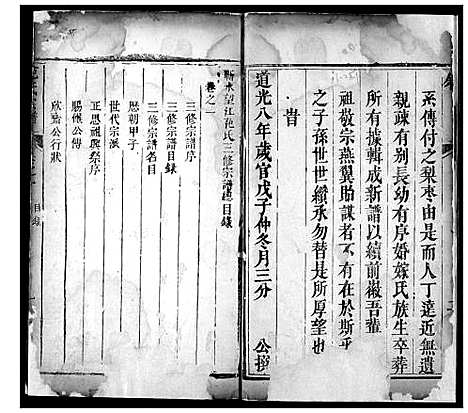 系傳付之梨棗由是而人丁遠近無遺
親疎有别長幼有序婚嫁氏族生卒葬
所有據輯成新譜以續前徽吾輩
祖敬宗燕翼貽謀者不有在於斯乎
之子孫世世纘承勿替是所厚望也
旹
道光八年歲官戊子仲冬月三分 公撰
新水望江范氏三修宗譜總目錄
卷之一
三修宗譜序
三修宗譜目錄
三修宗譜名目
歷朝甲子
世代宗派
正恩祖興祭序
賜儀公傳
公行狀
目錄